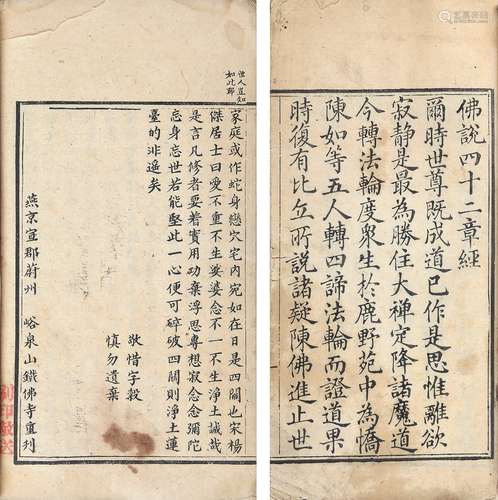 佛說四十二章經
爾時世尊既成道已作是思惟離欲
寂靜是最為勝住大禪定降諸魔道
今轉法輪度衆生於鹿野苑中為憍
陳如等五人轉四諦法輪而證道果
時復有比丘所說諸疑陳佛進止世
人豈知
如此耶
家庭或作蛇身戀穴宅內宛如在日是四關也宋楊
傑居士曰愛不重不生娑婆念不一不生淨土誠哉
是言凡修者要着實用功棄浮思專想寂念念彌陀
忘身忘世若能堅此一心便可碎破四關則淨土蓮
臺的非遙矣
敬惜字穀
慎勿遺棄
燕京宣郡蔚州 峪泉山鐵佛寺重刊